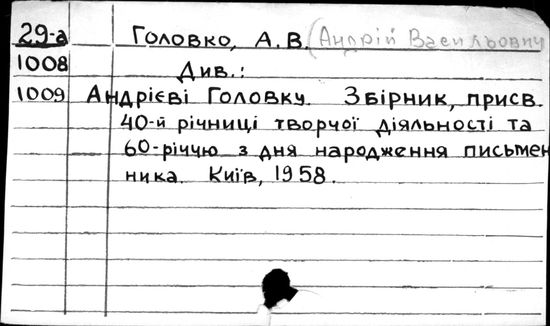 29-а Головко, А.В. (Андрій Васильович
1008 Див.:
1009 Андрієві Головку. Збірник, присв.
40-й річниці творчої діяльності та
60-річчю з дня народження письмен
ника. Київ, 1958.